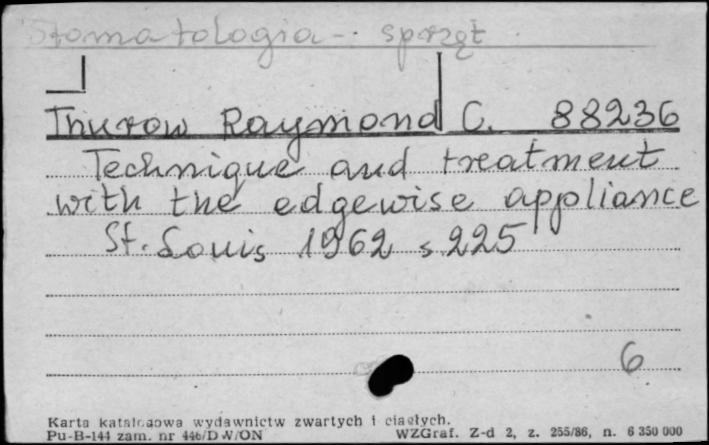 Stomatologia - sprzęt
Thurow Raymond C. 88236
Technique and treatment
with the edgewise appliance
St. Louis 1962 s 225
6
Karta katalogowa wydawnictw zwartych i ciągłych.
Pu-B-144 zam. nr 446/DW/ON WZGraf. Z-d 2, z. 255/86, n. 6 350 000